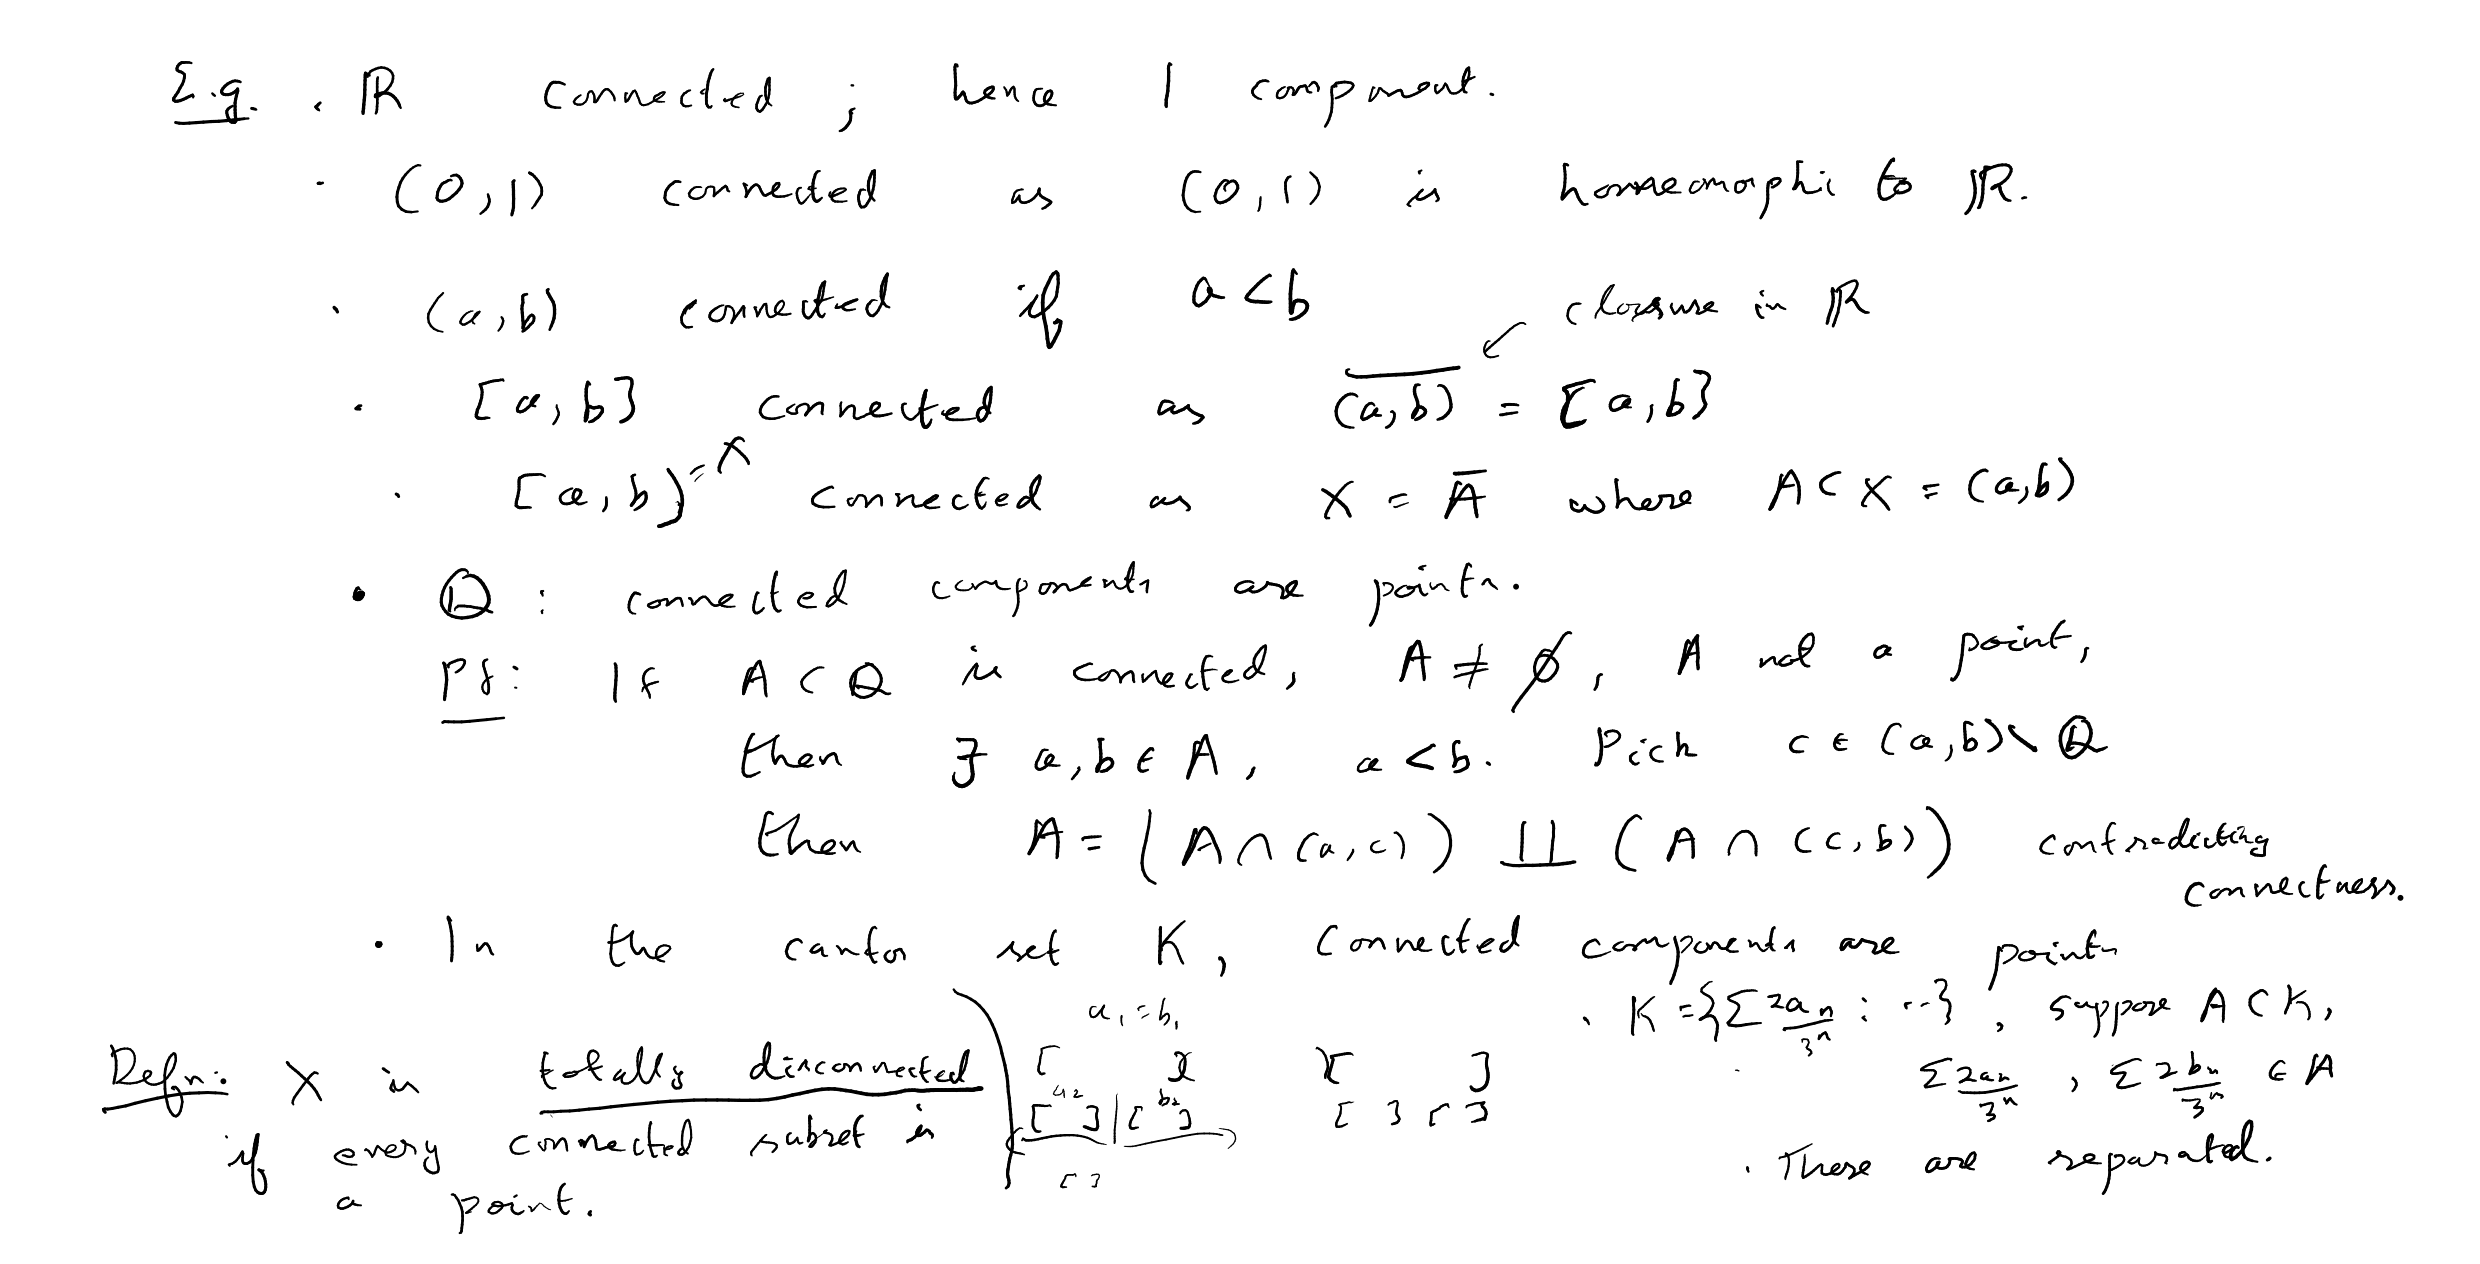 E.g. · ℝ connected ; hence 1 component.
· (0,1) connected as (0,1) is homeomorphic to ℝ.
· (a,b) connected if a<b
closure in ℝ
· [a,b] connected as \overline{(a,b)} = [a,b]
· [a,b)=X connected as X = \overline{A} where A⊂X = (a,b)
• ℚ : connected components are points.
Pf: If A⊂ℚ is connected, A≠∅, A not a point,
then ∃ a,b∈A, a<b. Pick c∈(a,b)∖ℚ
then A=(A∩(a,c)) ⨿ (A∩(c,b)) contradicting
connectness.
· In the cantor set K, connected components are points
· K={Σ 2a_n/3^n : ...}, suppose A⊂K,
Σ 2a_n/3^n , Σ 2b_n/3^n ∈A
· These are separated.
a₁=b₁
[ ] [ ]
a₂ b₂
[ ] | [ ] [ ] [ ]
[ ]
Defn: X is totally disconnected
if every connected subset is
a point.